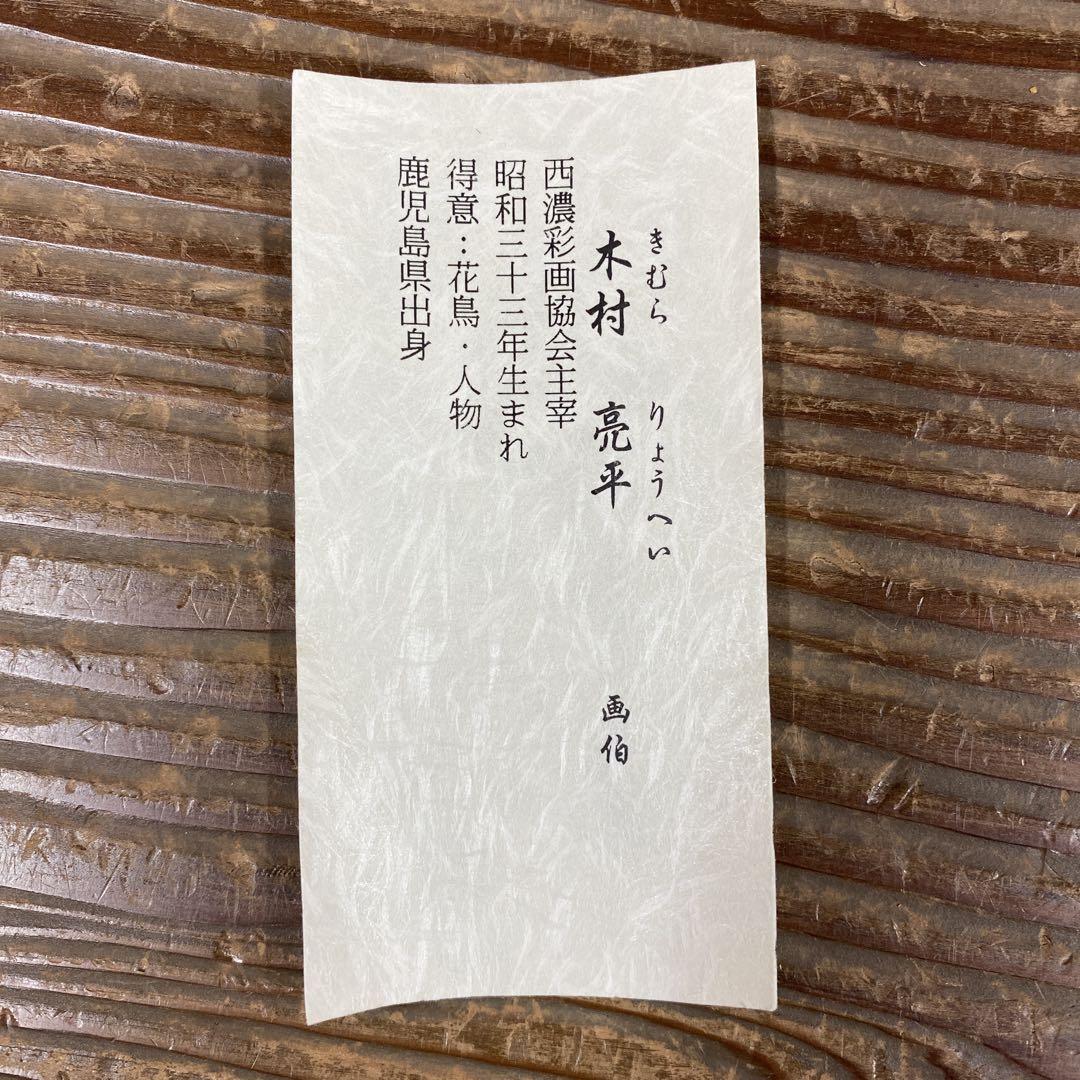 きむら りょうへい
木村 亮平 画伯
西濃彩画協会主宰
昭和三十三年生まれ
得意：花鳥・人物
鹿児島県出身